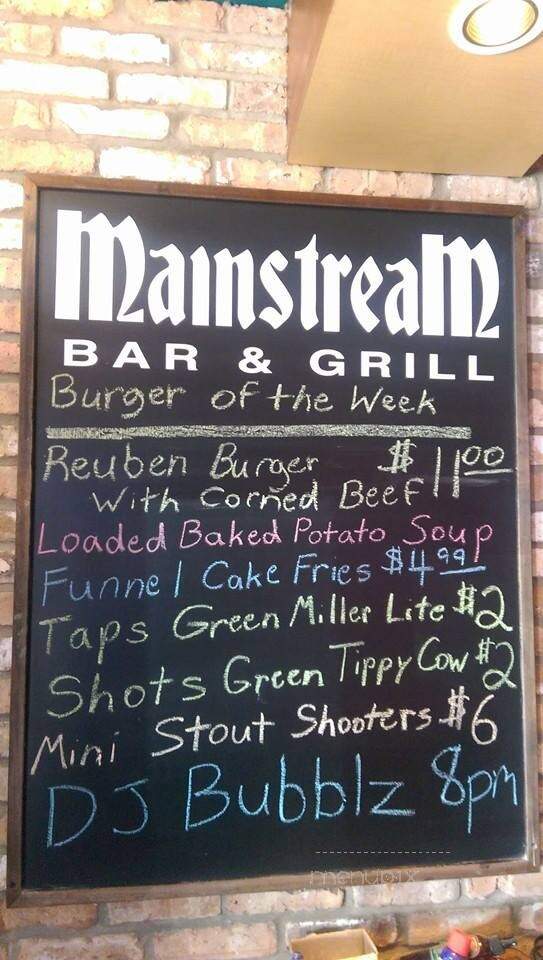 Mainstream
BAR & GRILL
Burger of the Week
Reuben Burger $11.00
With Corned Beef
Loaded Baked Potato Soup
Funnel Cake Fries $4.99
Taps Green Miller Lite $2
Shots Green Tippy Cow $2
Mini Stout Shooters $6
DJ Bubblz 8pm
menupix